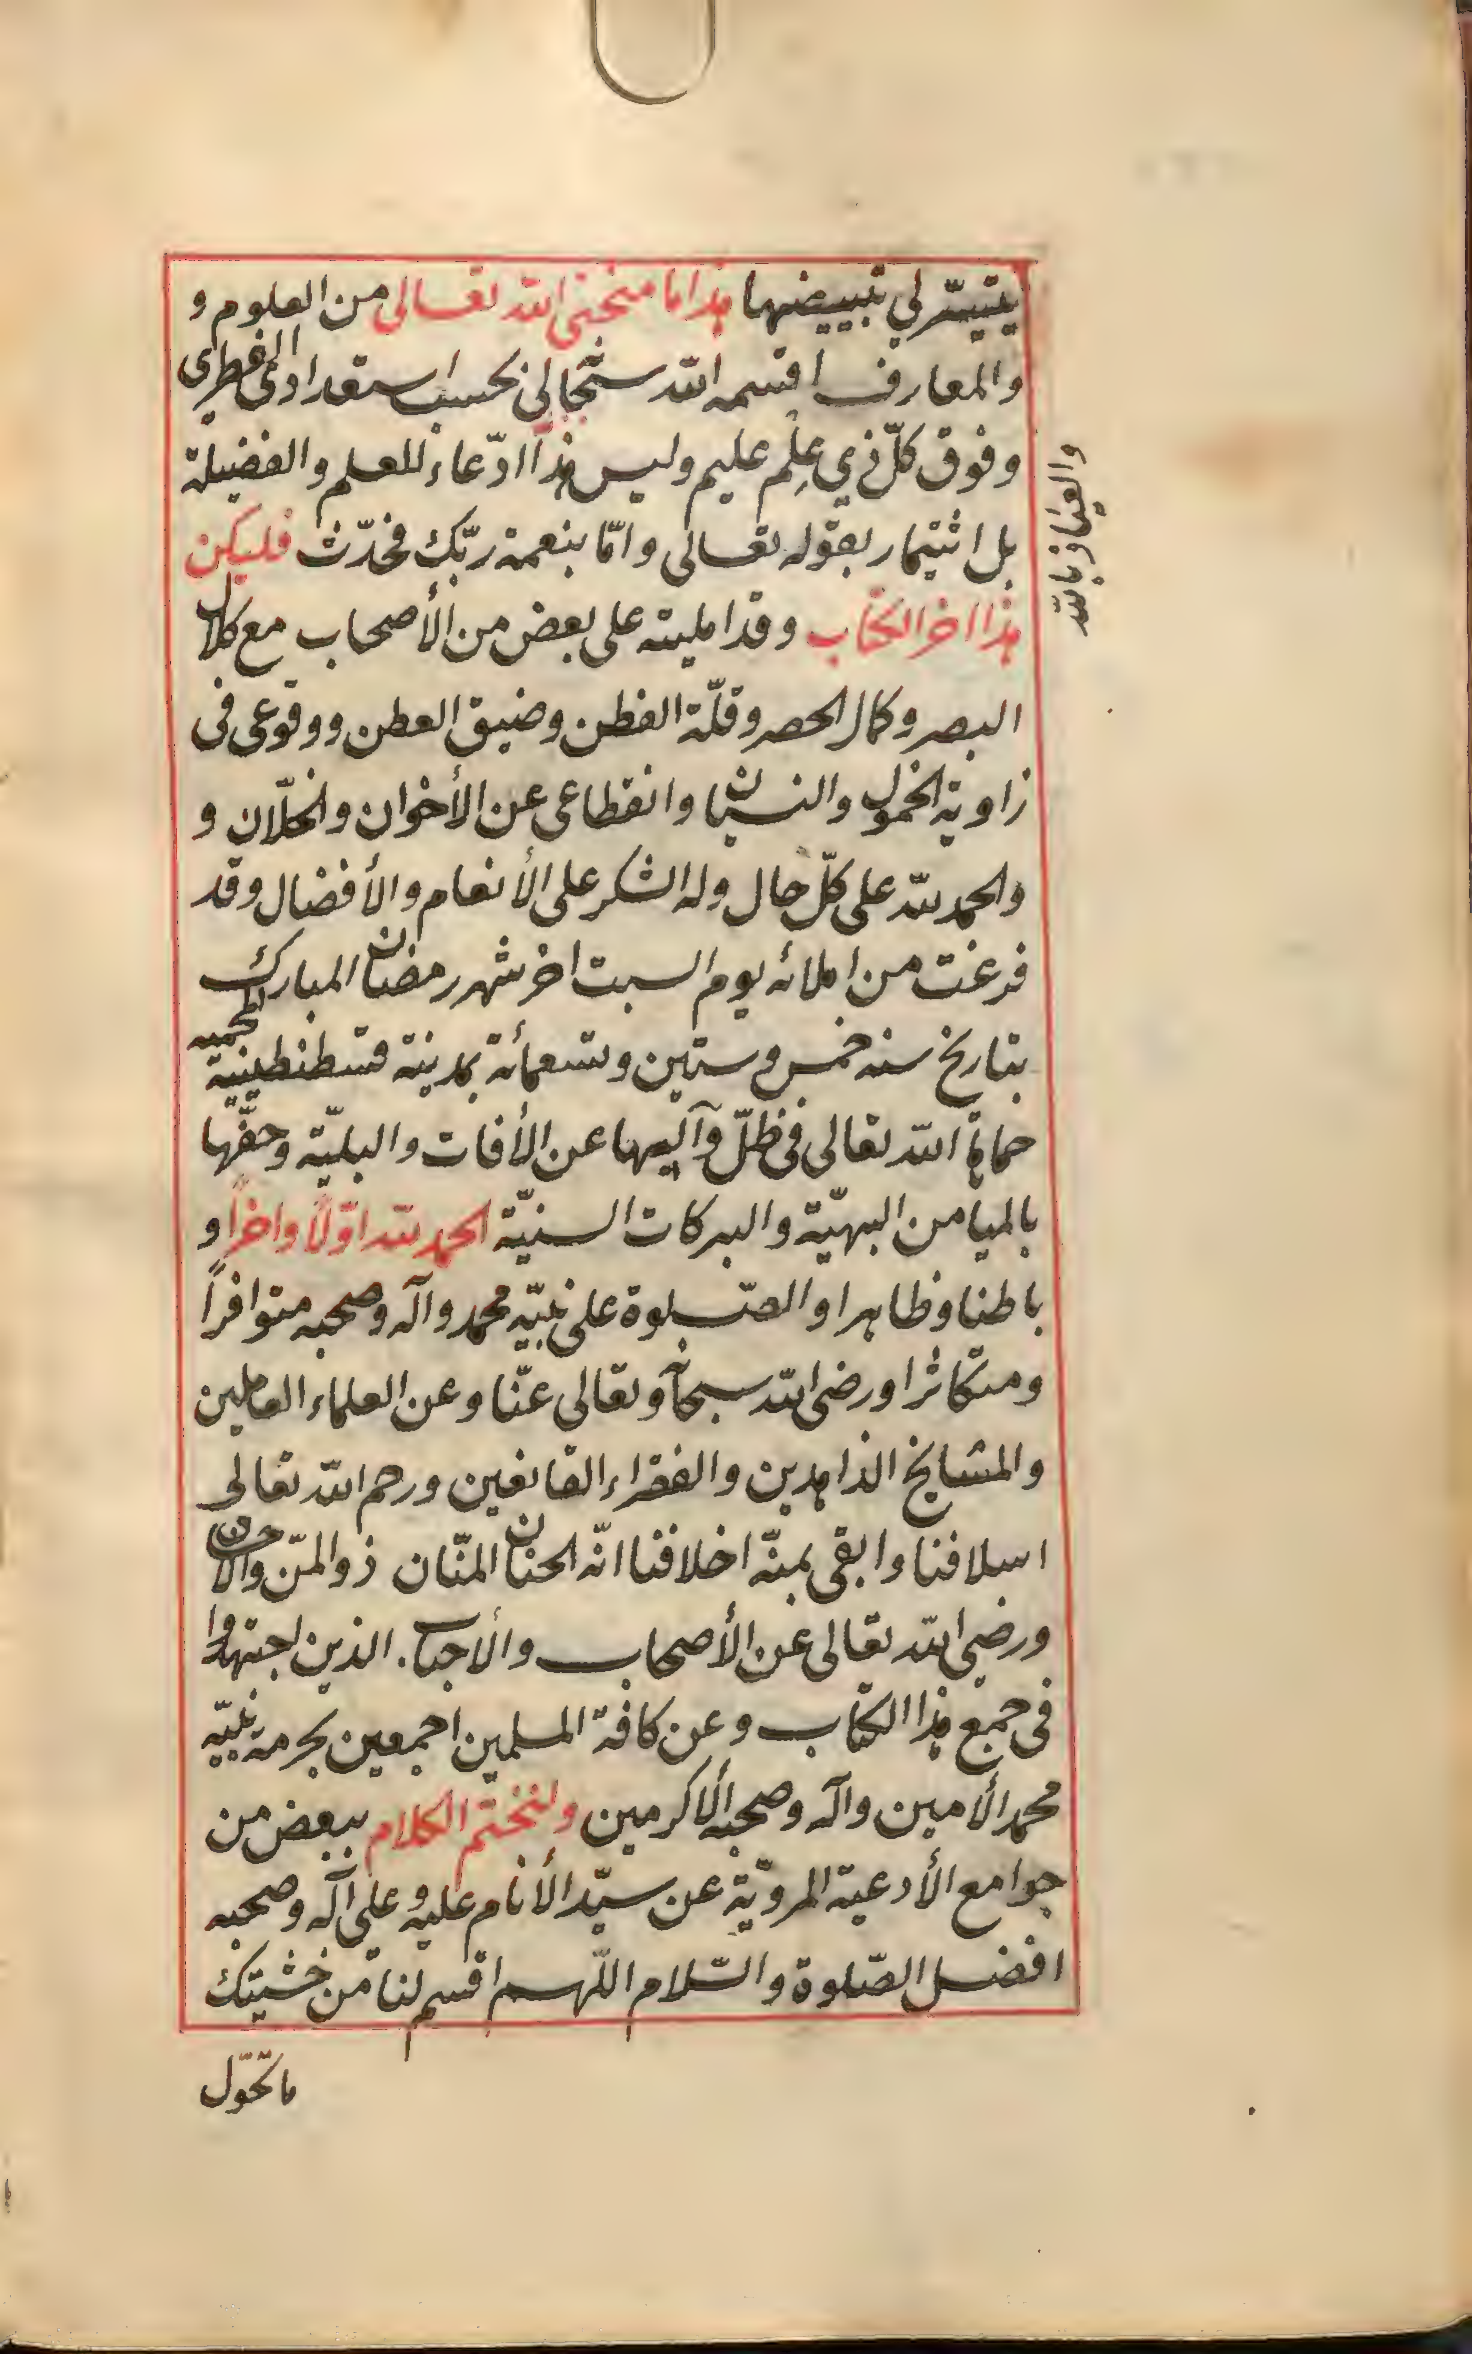 يتيسّر لي تبييضها هذا ما منحنى الله تعالى من العلوم و
والمعارف اقتسمه الله ستجالى بحسب استعدادى الفطرى
وفوق كلّ ذي علم عليم وليس هذا ادّعاء للعلم والفضيلة
والعياذ بالله
بل ائتمار بقوله تعالى وامّا بنعمة ربّك فحدّث فليكن
هذا اخر الكتاب وقد امليته على بعض من الأصحاب مع كلال
البصر وكمال الحصر وقلّة الفطن وضيق العطن ووقوعى فى
زاوية الخمول والنسيان وانقطاعى عن الأخوان والخلّان و
والحمد لله على كلّ حال وله الشكر على الأنعام والأفضال وقد
فرغت من املائه يوم السبت اخر شهر رمضان المبارك
بتاريخ سنه خمس وستين وتسعمائة بمدينة قسطنطينية المحميه
حماها الله تعالى فى ظلّ وآليها عن الأفات والبليّة وحفّها
بالميامن البهيّة والبركات السنيّة الحمد لله اوّلاً واخراً و
باطنا وظاهرا والصّلوة على نبيّه محمد وآله وصحبه متوافراً
ومتكاثرا ورضى الله سبحآ وتعالى عنّا وعن العلماء العاملين
والمشايخ الذاهدين والفقراء القانعين ورحم الله تعالى
اسلافنا وابقى بمنّه اخلافنا انّه الحنان المنّان ذو المنّ والاحسان
ورضى الله تعالى عن الأصحاب والأحباب. الذين اجتهدوا
فى جمع هذا الكتاب وعن كافة المسلمين اجمعين بحرمة نبيّه
محمد الأمين وآله وصحبه الأكرمين ولنختم الكلام ببعض من
جوامع الأدعية المرويّة عن سيّد الأنام عليه وعلى آله وصحبه
افضل الصّلوة والسّلام اللّهم اقسم لنا من خشيتك
ما تحوّل